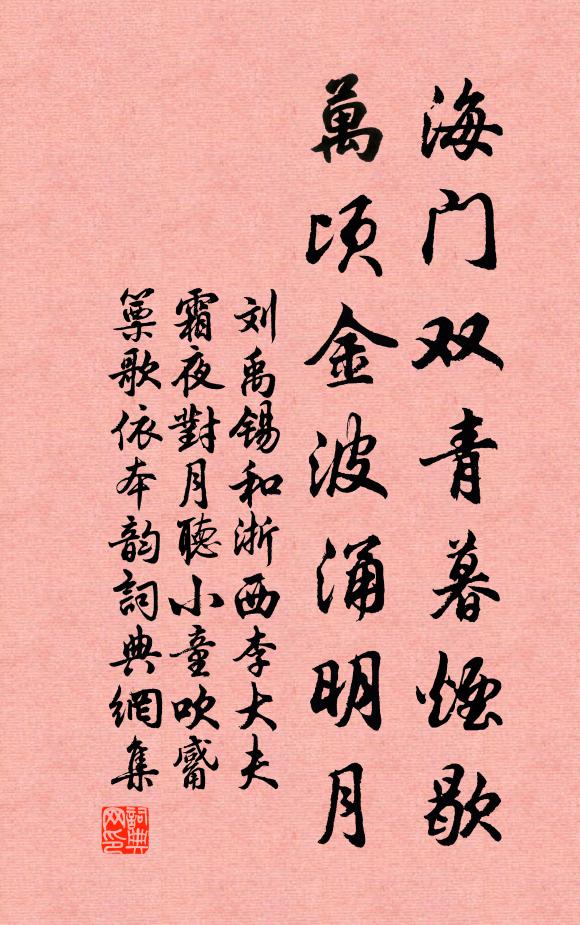 海门双青暮煙歇
萬顷金波涌明月
刘禹锡和浙西李大夫
霜夜對月聽小童吹觱
篥歌依本韵詞典網集
詞典网印